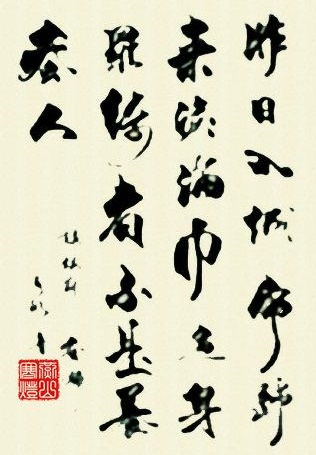 昨日入城市歸
来淚滿巾遍身
羅綺者不是養
蚕人